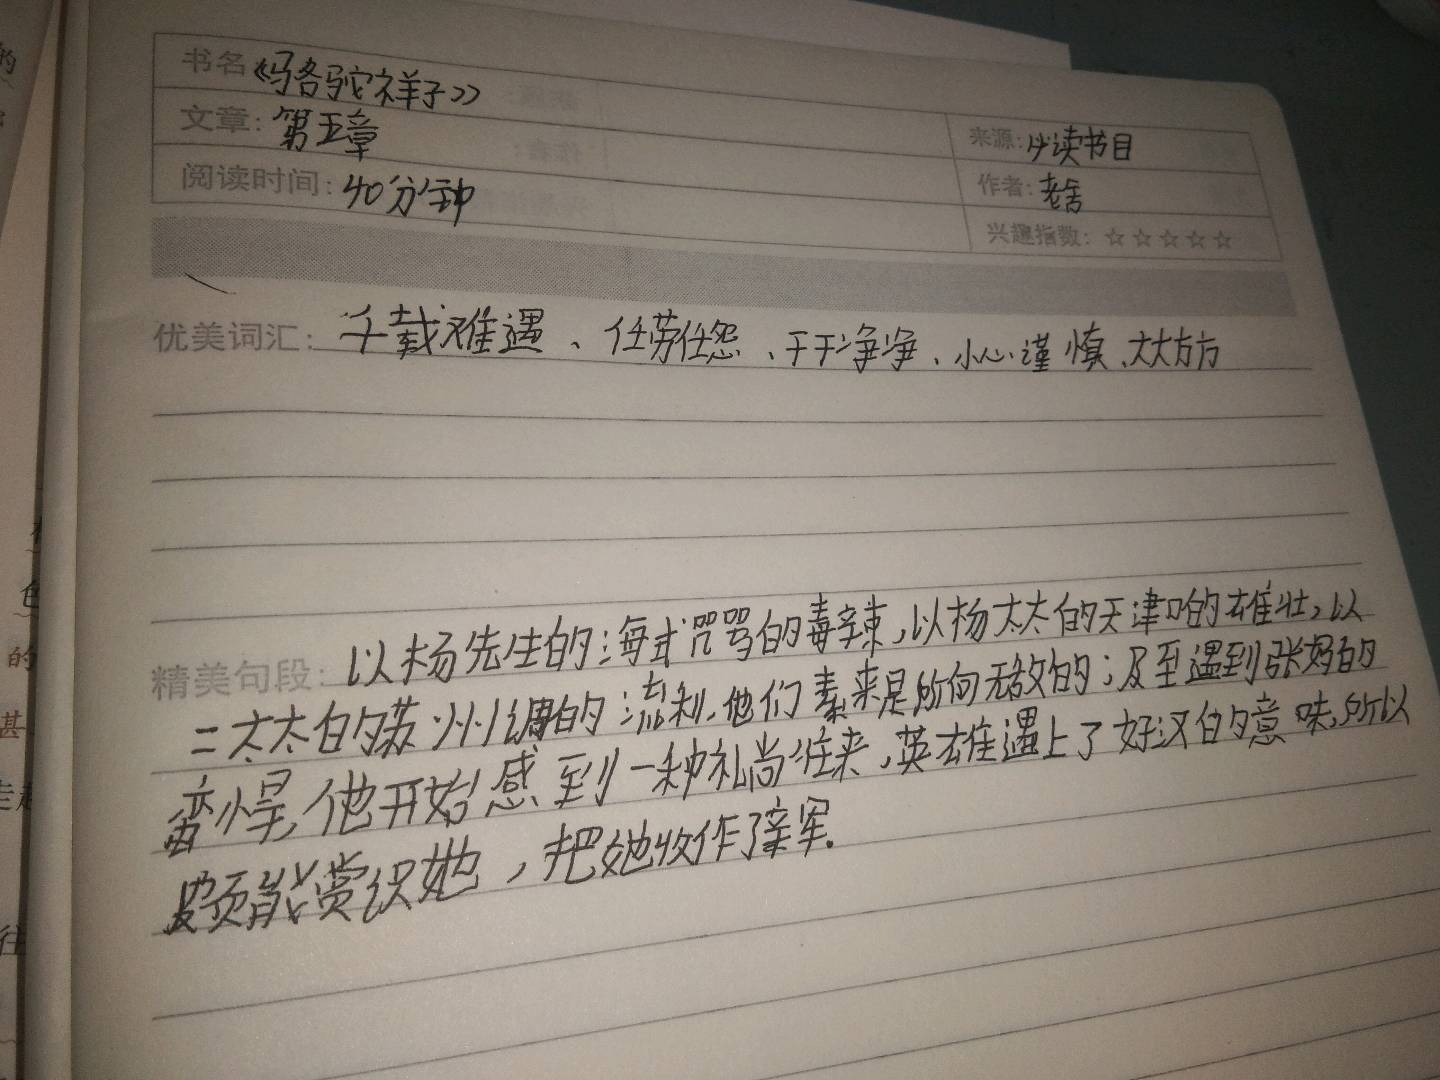 书名《骆驼祥子》
文章：第五章
来源：必读书目
阅读时间：40分钟
作者：老舍
兴趣指数：☆☆☆☆☆
优美词汇：千载难遇、任劳任怨、干干净净、小心谨慎、大大方方
精美句段：以杨先生的海式咒骂的毒辣，以杨太太的天津口的雄壮，以
二太太的苏州调的流利，他们素来是所向无敌的；及至遇到张妈的
蛮悍，他开始感到一种礼尚往来，英雄遇上了好汉的意味，所以
颇能赏识她，把她收作了亲军.